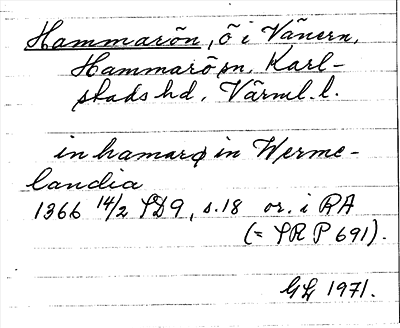 Hammarön, ö i Vänern,
Hammarö sn, Karl-
stads hd, Värml. l.
in hamarø in Werme-
landia
1366 14/2 SD 9, s. 18 or. i RA
(= SRP 691).
GL 1971.